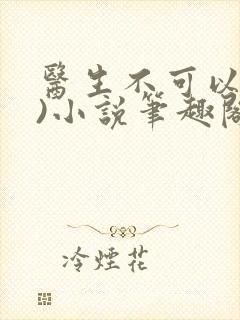 醫生不可以
)小說筆趣閣
冷煙花